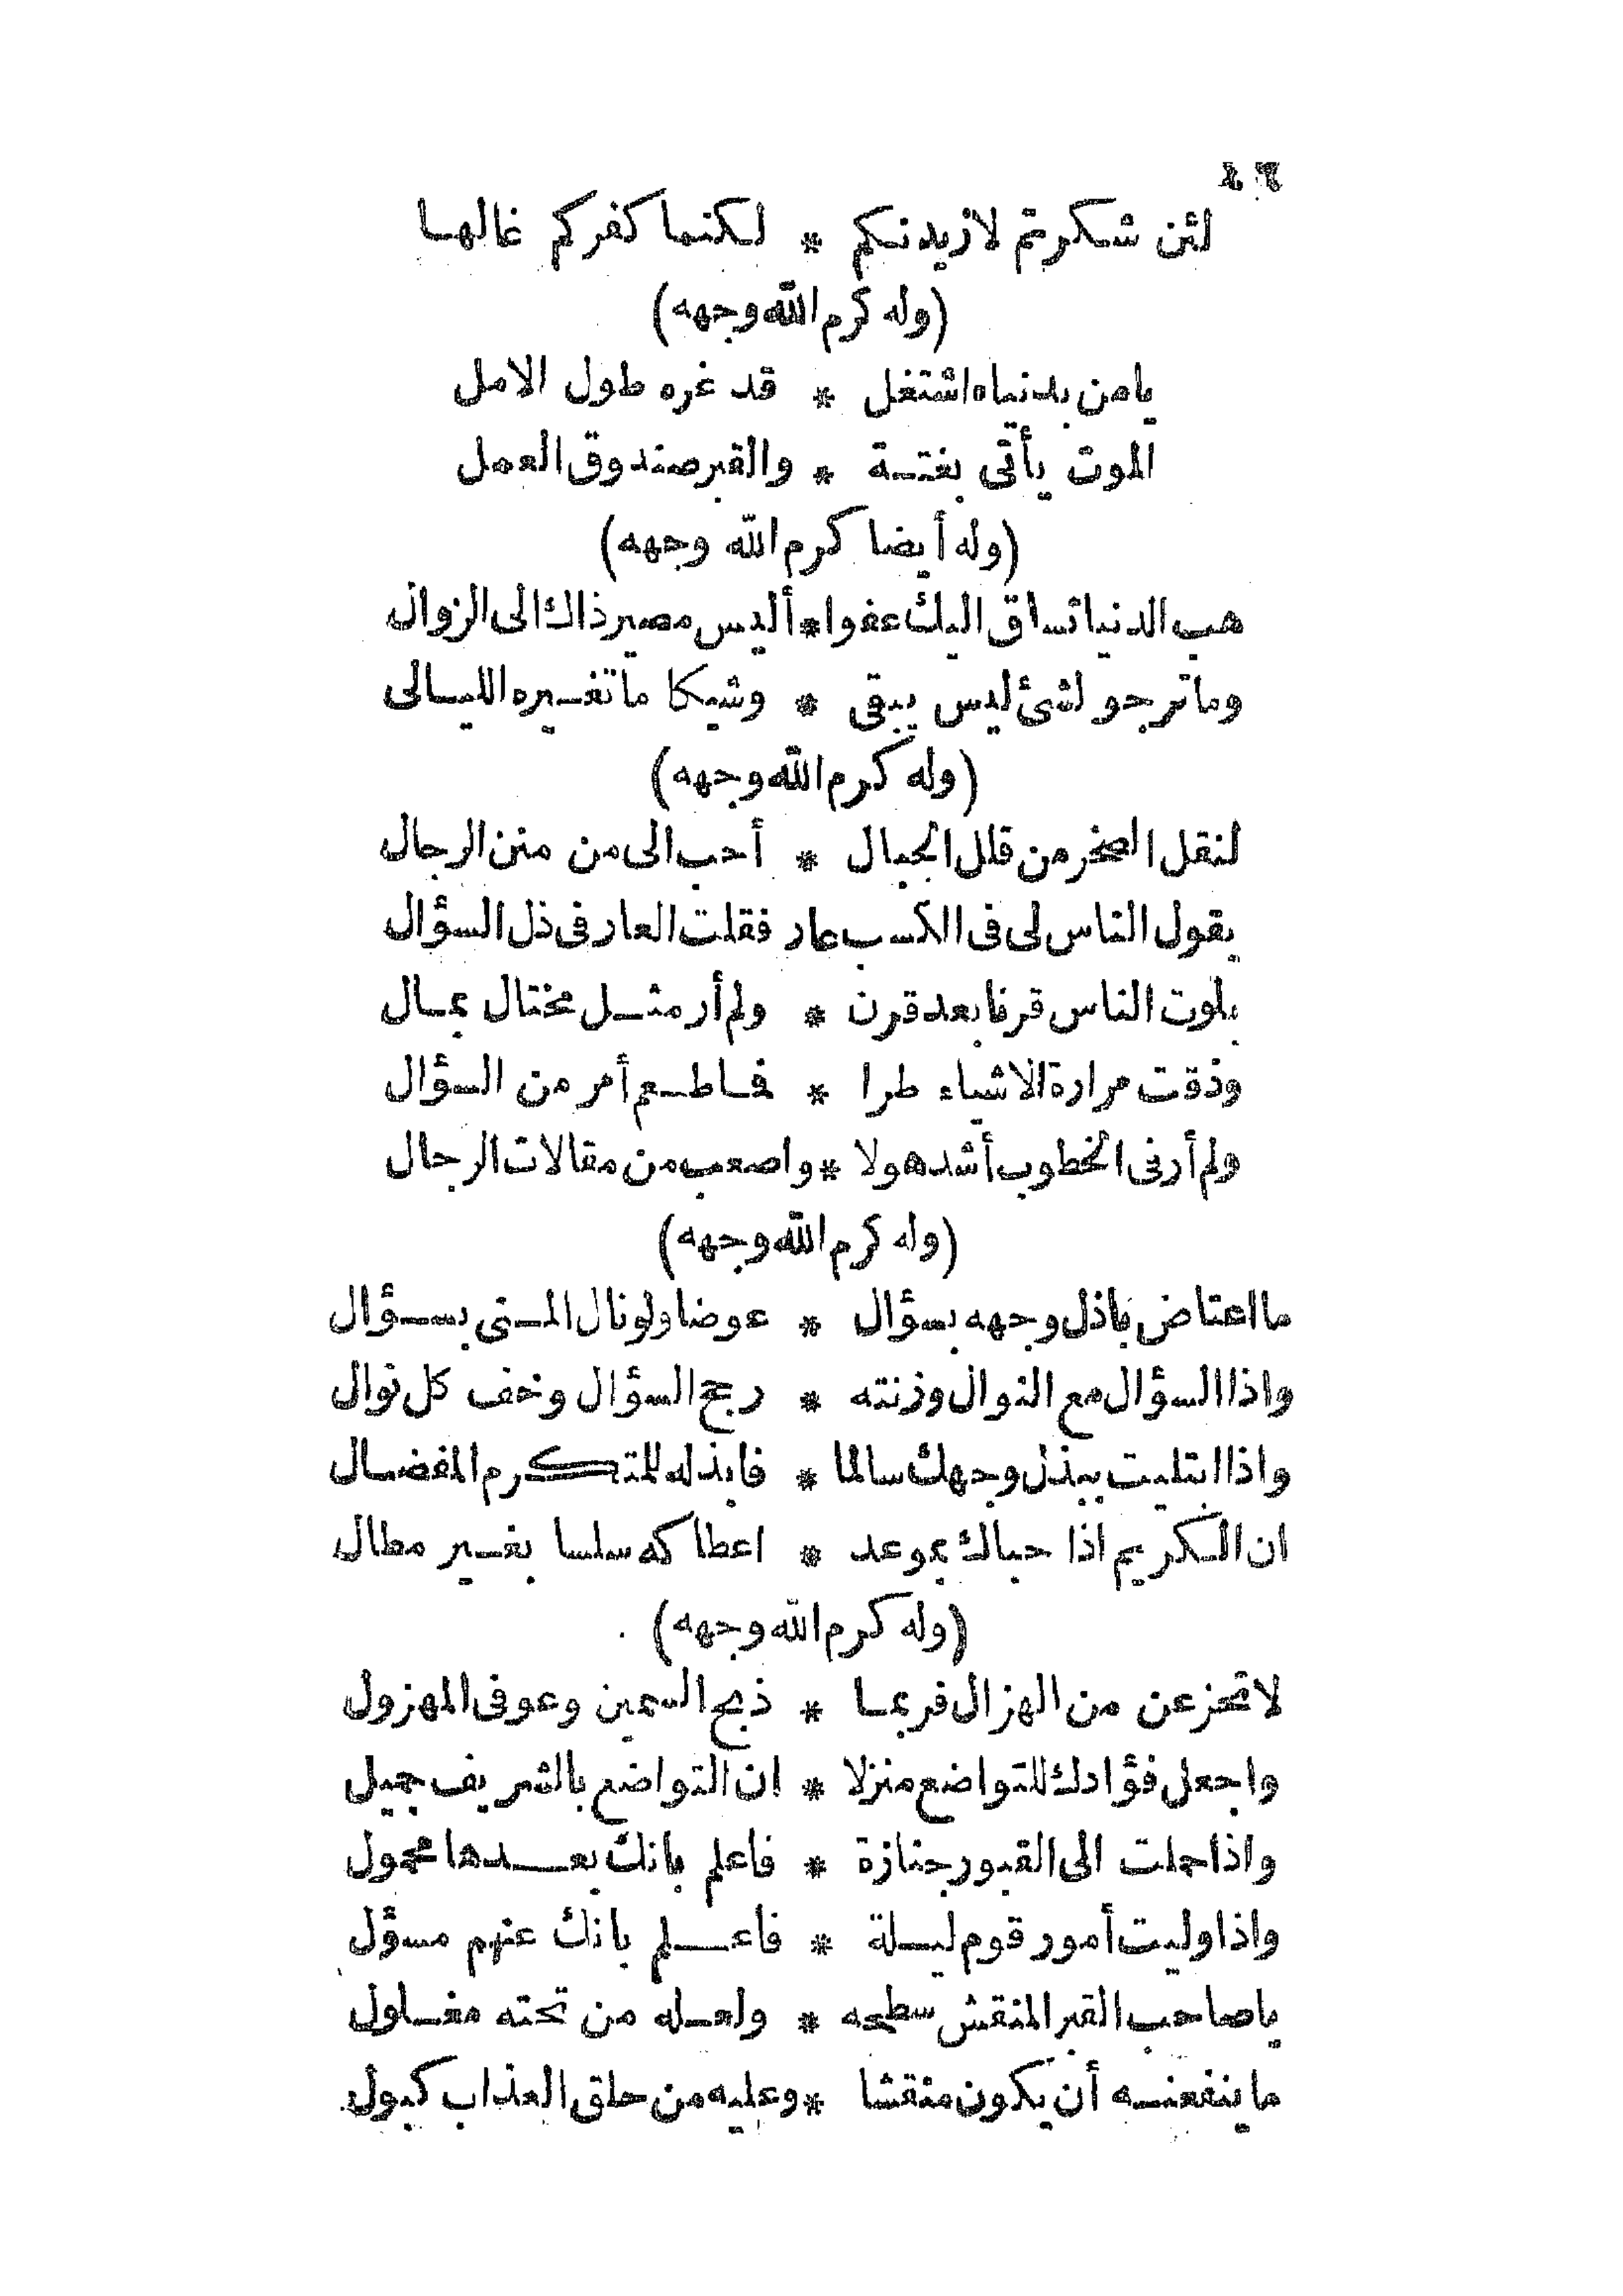 لئن شكرتم لازيدنكم * لكنما كفركم غالها
(وله كرم الله وجهه)
يامن بدنياه اشتغل * قد غره طول الامل
الموت يأتى بغتة * والقبر صندوق العمل
(وله أيضا كرم الله وجهه)
هب الدنيا تساق اليك عفوا * أليس مصير ذاك الى الزوال
وما ترجو لشئ ليس يبقى * وشيكا ما تغيره الليالى
(وله كرم الله وجهه)
لنقل الصخر من قلل الجبال * أحب الى من منن الرجال
يقول الناس لى فى الكسب عار فقلت العار فى ذل السؤال
بلوت الناس قرنا بعد قرن * ولم أر مثل مختال بمال
وذقت مرارة الاشياء طرا * فما طعم أمر من السؤال
ولم أر فى الخطوب أشد هولا * واصعب من مقالات الرجال
(وله كرم الله وجهه)
ما اعتاض باذل وجهه بسؤال * عوضا ولو نال المنى بسؤال
واذا السؤال مع النوال وزنته * رجح السؤال وخف كل نوال
واذا ابتليت ببذل وجهك سائلا * فابذله للمتكرم المفضال
ان الكريم اذا حباك بموعد * اعطاكه سلسا بغير مطال
(وله كرم الله وجهه)
لا تجزعن من الهزال فربما * ذبح السمين وعوفى المهزول
واجعل فؤادك للتواضع منزلا * ان التواضع بالشريف جميل
واذا حملت الى القبور جنازة * فاعلم بانك بعدها محمول
واذا وليت أمور قوم ليلة * فاعلم بانك عنهم مسؤل
يا صاحب القبر المنقش سطحه * ولعله من تحته مغلول
ما ينفعنه أن يكون منقشا * وعليه من حلق العذاب كبول